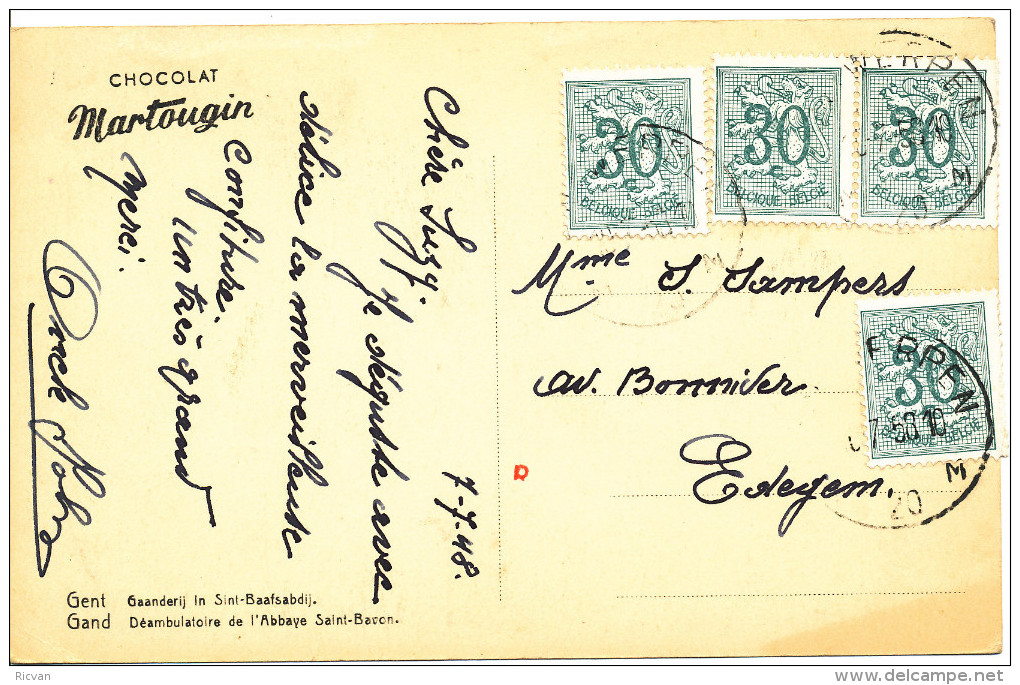 CHOCOLAT
Martougin
7-7-48.
Chère Suzy.
Je déguste avec
délice la merveilleuse
Confiture.
un très grand
Merci.
Gent Gaanderij in Sint-Baafsabdij.
Gand Déambulatoire de l'Abbaye Saint-Bavon.
30
BELGIQUE BELGIË
30
BELGIQUE BELGIË
30
BELGIQUE BELGIË
Mme S. Sampers
av. Bonnivler
Edegem.
30
BELGIQUE BELGIË
ERPEN
M
20
Ricvan
www.delcampe.net